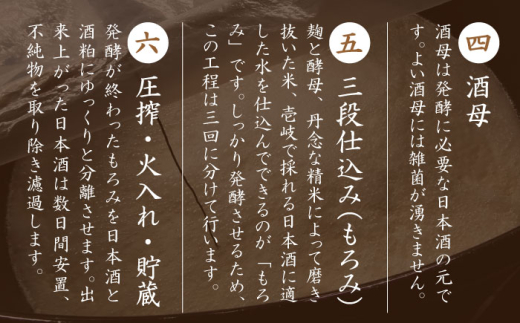 四 酒母
酒母は発酵に必要な日本酒の元で
す。よい酒母には雑菌が湧きません。
五 三段仕込み(もろみ)
麹と酵母、丹念な精米によって磨き
抜いた米、壱岐で採れる日本酒に適
した水を仕込んでできるのが「もろ
み」です。しっかり発酵させるため、
この工程は三回に分けて行います。
六 圧搾・火入れ・貯蔵
発酵が終わったもろみを日本酒と
酒粕にゆっくりと分離させます。出
来上がった日本酒は数日間安置、
不純物を取り除き濾過します。